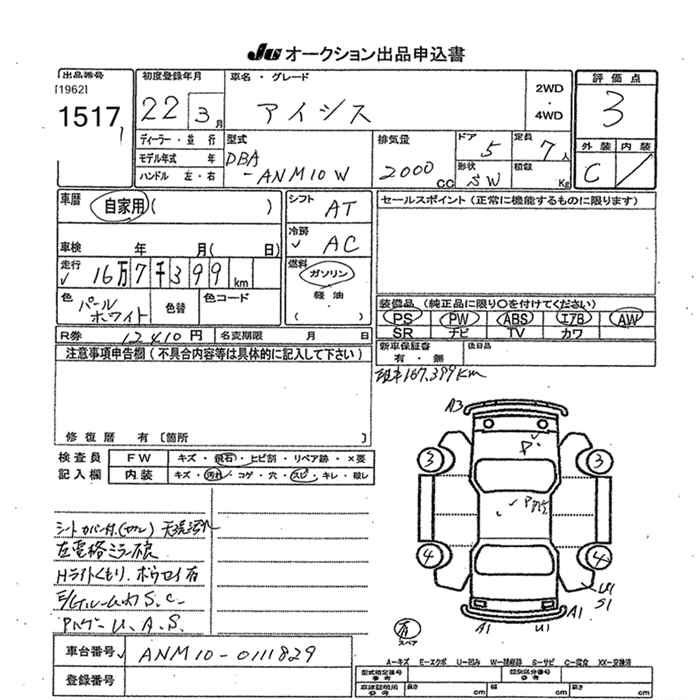 JU オークション出品申込書
出品番号
[1962]
1517
初度登録年月
22 3月
車名・グレード
アイシス
2WD
・
4WD
評価点
3
外装 内装
C
ディーラー・並行
モデル年式 年
ハンドル 左・右
型式
DBA
-ANM10W
排気量
2000cc
ドア
5
定員
7人
形状
SW
積載
Kg
車歴
自家用( )
車検 年 月( 日)
走行
16万7千399km
色
パール
ホワイト
色替
色コード
シフト
AT
冷房
AC
燃料
ガソリン
軽油
( )
セールスポイント(正常に機能するものに限ります)
装備品(純正品に限り○を付けてください)
PS PW ABS エアB AW
SR ナビ TV カワ
新車保証書
有・無
後日品
R券 12410円 名変期限 月 日
注意事項申告欄(不具合内容等は具体的に記入して下さい)
修復歴 有[箇所 ]
167,399Km
検査員
記入欄
FW キズ・飛石・ヒビ割・リペア跡・×要
内装 キズ・汚れ・コゲ・穴・スレ・キレ・破レ
シートカバー付
左電格ミラー
Hライトくもり
S.C.
U.A.S.
A3
P
3 3
4 4
U1
S1
A1 U1 A1
有
スペア
車台番号 ANM10-0111829
登録番号
A-キズ E-エクボ U-凹み W-補修跡 S-サビ C-腐食 XX-交換済
長さ cm 幅 cm 高さ cm